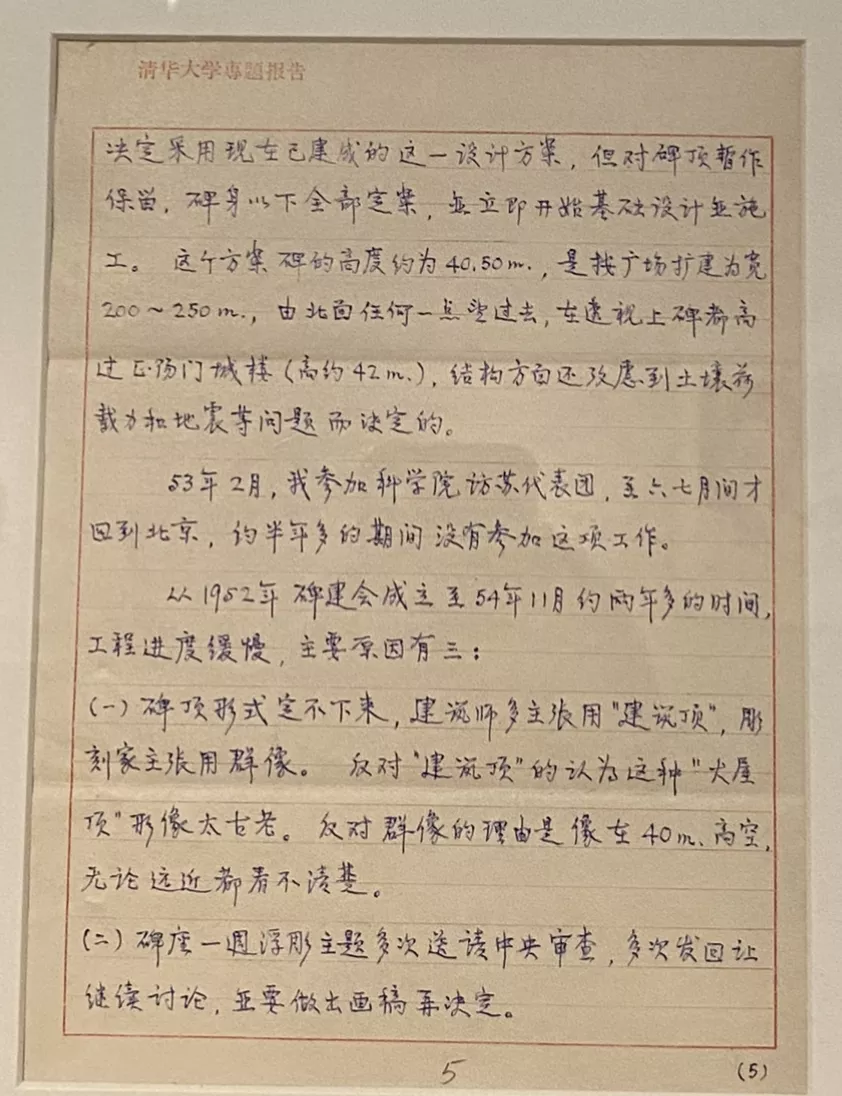 清华大学专题报告
决定采用现在已建成的这一设计方案，但对碑顶暂作
保留，碑身以下全部定案，并立即开始基础设计並施
工。 这个方案碑的高度约为40.50m.，是按广场扩建为宽
200～250m.，由北面任何一点望过去，在透视上碑都高
过正阳门城楼（高约42m.），结构方面还攷虑到土壤荷
载力和地震等问题而决定的。
53年2月，我参加科学院访苏代表团，至六七月间才
回到北京，约半年多的期间没有参加这项工作。
从1952年碑建会成立至54年11月约两年多的时间，
工程进度缓慢，主要原因有三：
（一）碑顶形式定不下来，建筑师多主张用“建筑顶”，彫
刻家主张用群像。 反对“建筑顶”的认为这种“大屋
顶”形像太古老。反对群像的理由是像在40m.高空，
无论远近都看不清楚。
（二）碑座一週浮彫主题多次送请中央审查，多次发回让
继续讨论，並要做出画稿再决定。
5
(5)